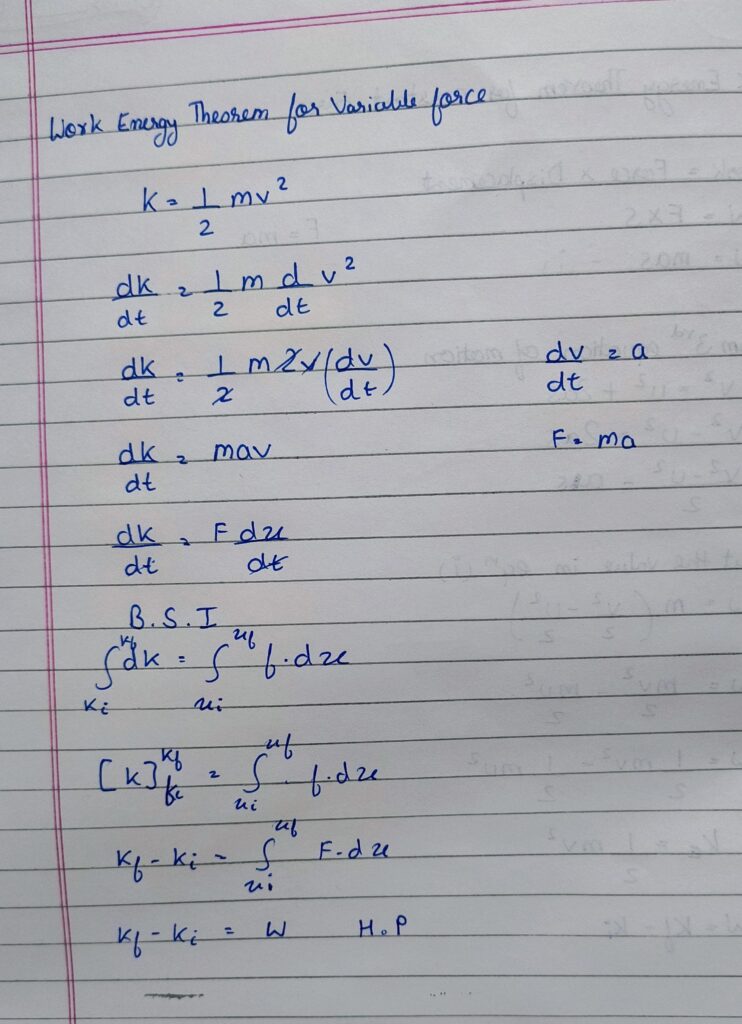 Work Energy Theorem for Variable force
k = 1/2 mv²
dk/dt = 1/2 m d/dt v²
dk/dt = 1/2 m 2v (dv/dt) dv/dt = a
dk/dt = mav F = ma
dk/dt = F dx/dt
B.S.I
∫_{Ki}^{Kf} dk = ∫_{xi}^{xf} f.dx
[K]_{Ki}^{Kf} = ∫_{xi}^{xf} f.dx
Kf - Ki = ∫_{xi}^{xf} F.dx
Kf - Ki = W H.P